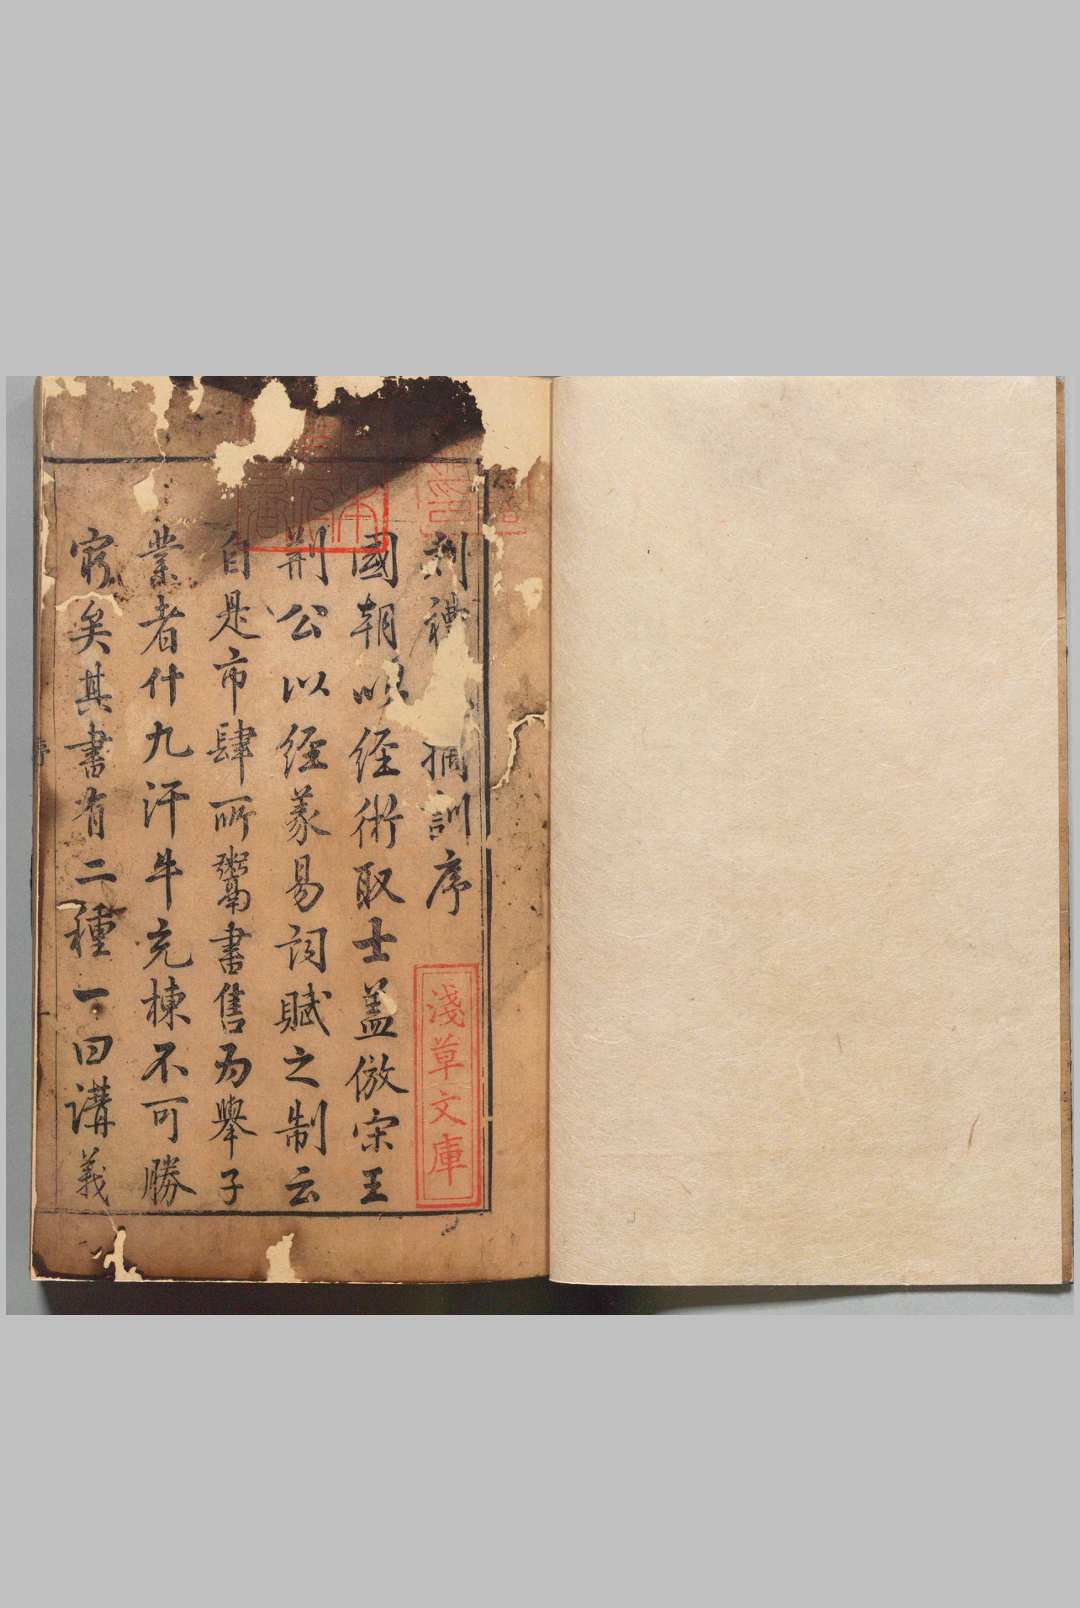 刻禮摘訓序
淺草文庫
國朝以經術取士蓋倣宋王
荆公以經義易詞賦之制云
自是市肆所鬻書售為舉子
業者什九汗牛充棟不可勝
窮矣其書有二種一曰講義